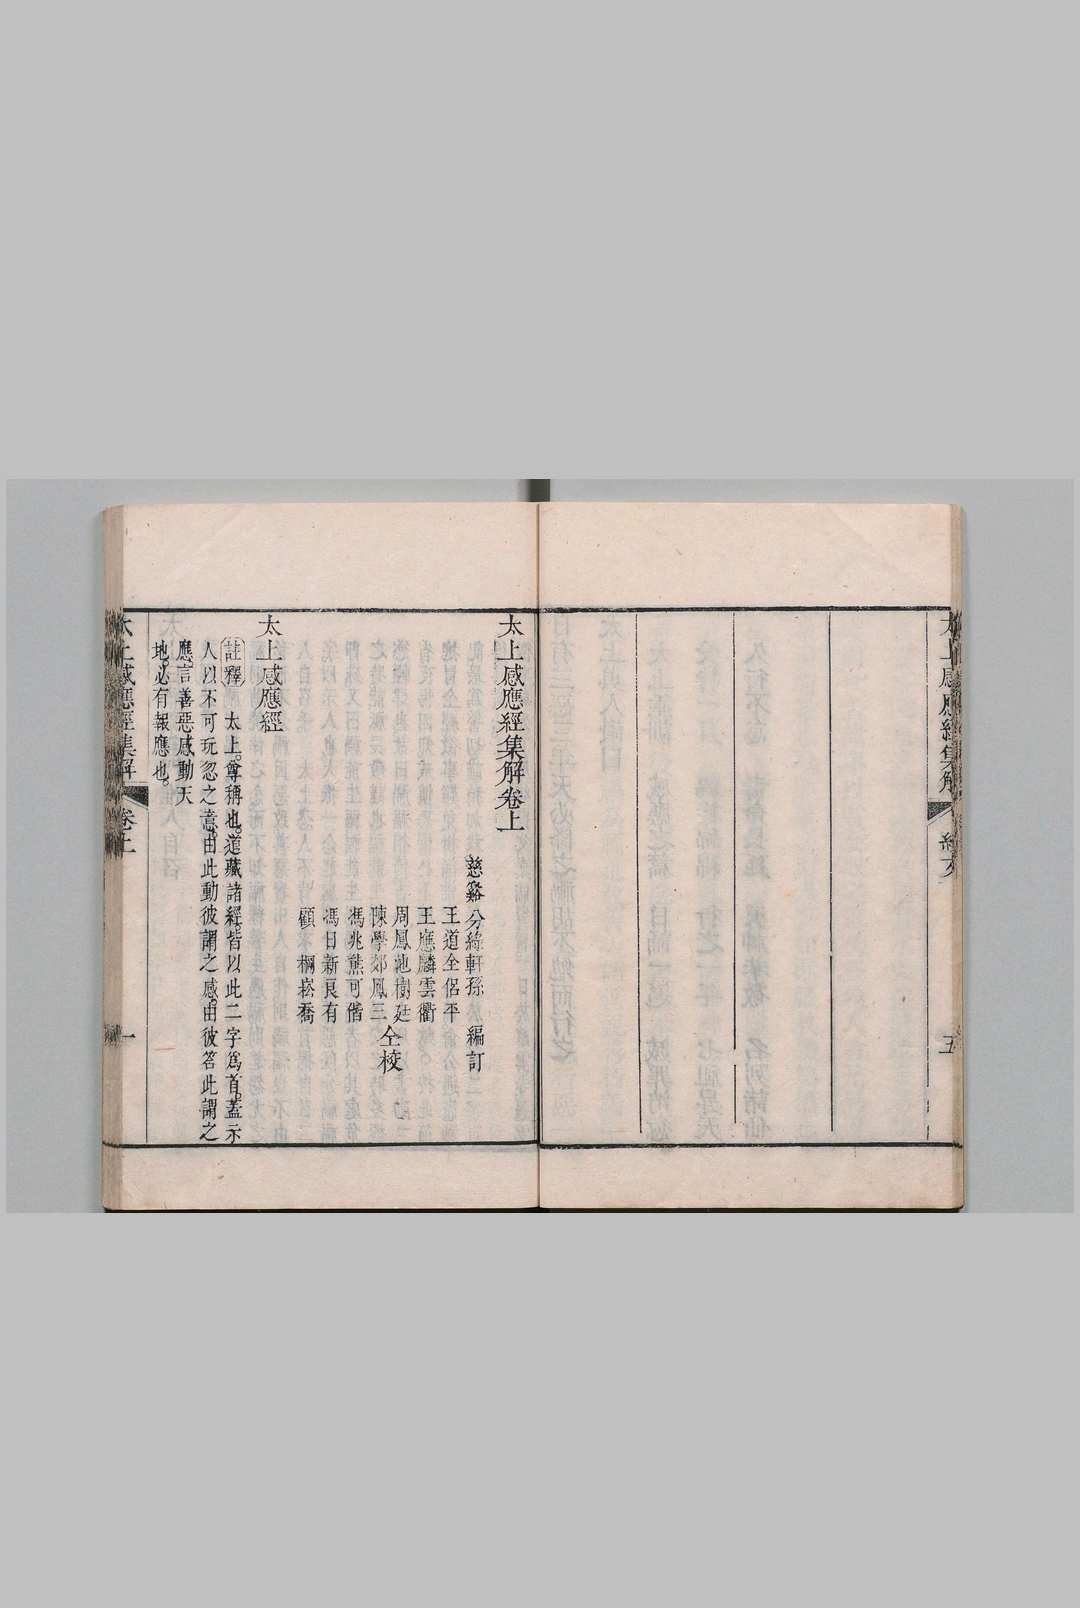 太上感應經集解
經文
五
太上感應經集解卷上
慈谿 分綠軒孫 編訂
王道全侶平
王應麟雲衢
周鳳池樹廷
陳學郊鳳三 仝校
馮兆熊可偕
馮日新艮有
顧棡崧喬
太上感應經
註釋 太上。尊稱也。道藏諸經。皆以此二字為首。蓋示
人以不可玩忽之意。由此動彼謂之感。由彼答此謂之
應。言善惡感動天
地。必有報應也。
太上感應經集解 卷上
一